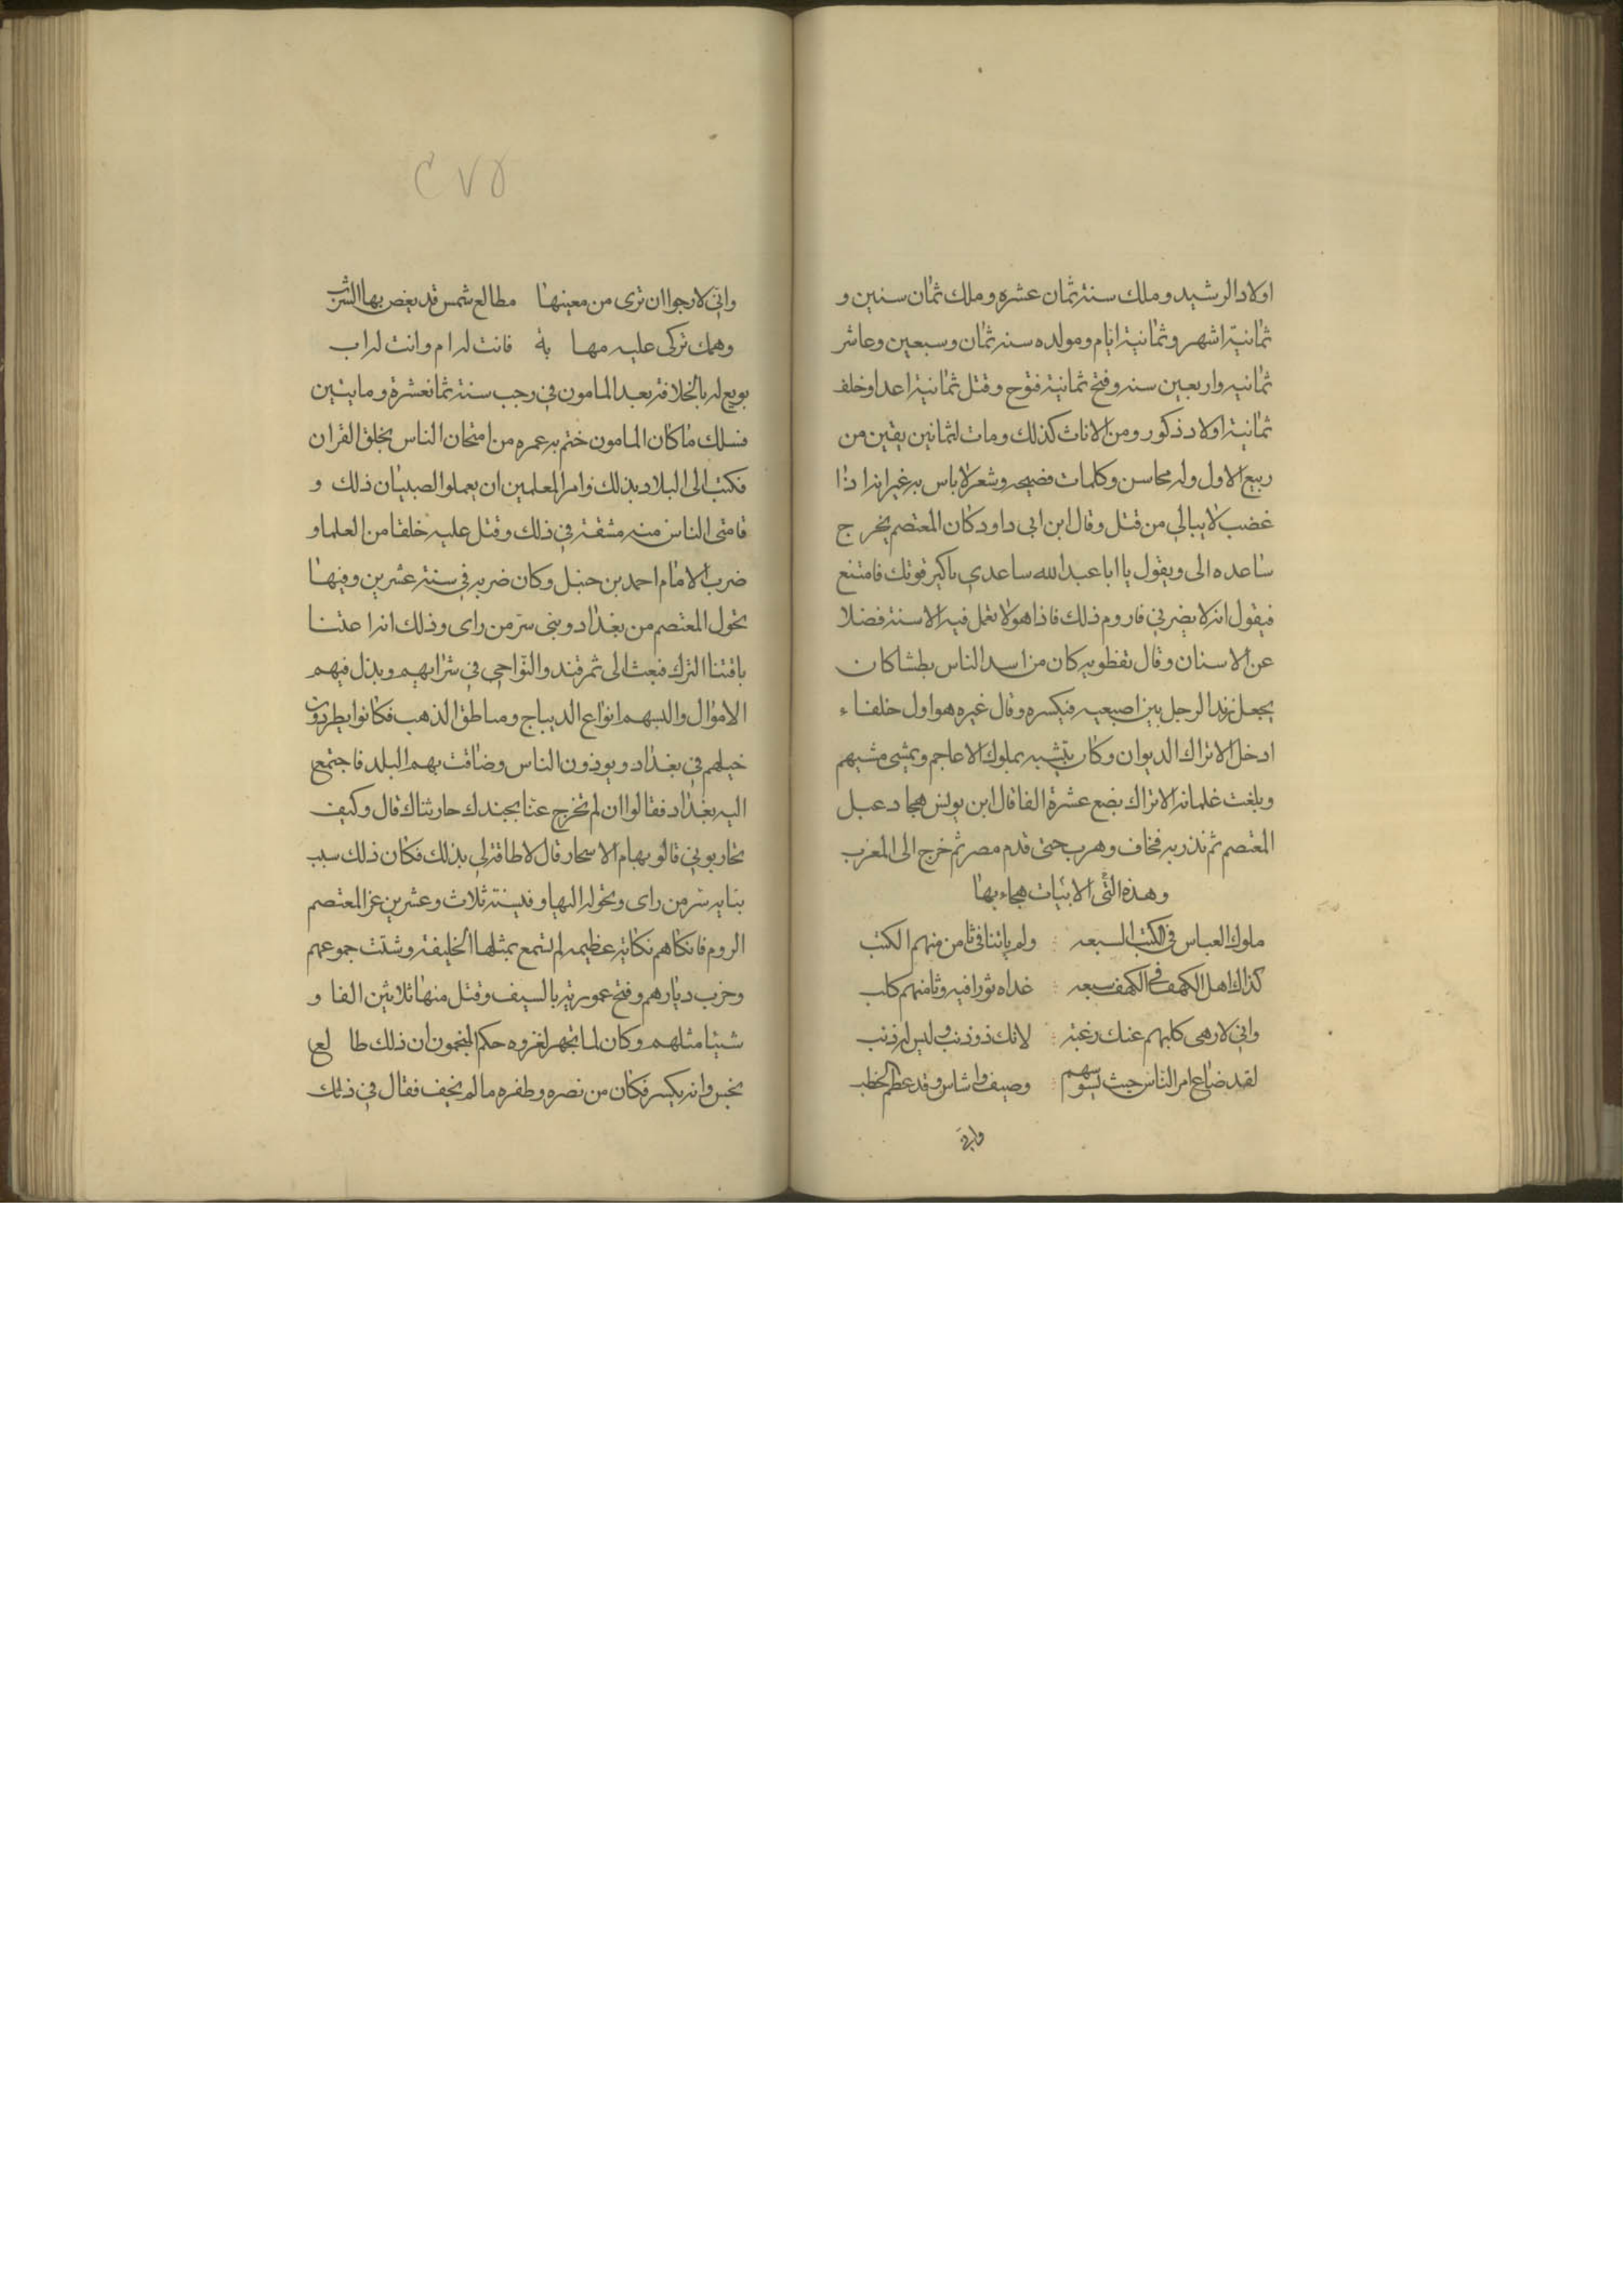 اولاد الرشيد وملك سنة ثمان عشره وملك ثمان سنين و
ثمانية اشهر وثمانية ايام ومولده سنه ثمان وسبعين وعاش
ثمانيه واربعين سنه وفتح ثمانية فتوح وقتل ثمانية اعدا وخلف
ثمانية اولاد ذكور ومن الاناث كذلك ومات لثمانين بقين من
ربيع الاول وله محاسن وكلمات فصيحه وشعر لاباس به غير انه اذا
غضب لا يبالي من قتل وقال ابن ابي داود كان المعتصم يخرج
ساعده الى ويقول يا ابا عبد الله ساعدي باكير قوتك فامتنع
فيقول انه لا يضرني فاروم ذلك فاذا هو لا تعمل فيه الاسنة فضلا
عن الاسنان وقال نفطويه كان من اسد الناس بطشا كان
يجعل زند الرجل بين اصبعيه فيكسره وقال غيره هو اول خلفاء
ادخل الاتراك الديوان وكان يتشبه بملوك الاعاجم ويمشى مشيهم
وبلغت غلمانه الاتراك بضع عشرة الفا قال ابن يونس هجا دعبل
المعتصم ثم نذر به فخاف وهرب حتى قدم مصر ثم خرج الى المغرب
وهذه التى الابيات هجاء بها
ملوك العباس في الكتب السبعه ولم ياتنا في ثامن منهم الكتب
كذاك اهل الكهف في الكهف سبعه غداه ثورا فيه وثامنهم كلب
واني لارهى كلبهم عنك رغبة لانك ذو ذنب وليس له ذنب
لقد ضاع امر الناس حيث يسوسهم وصيف واشاس وقد عظم الخطب
واني
٢٧٥
واني لارجوا ان ترى من معينها مطالع شمس قد يغص بها الشرب
وهمك تركى عليه مها بة فانت له ام وانت له اب
بويع له بالخلافة بعد المامون في رجب سنة ثمانعشرة ومايتين
فسلك ما كان المامون ختم به عمره من امتحان الناس بخلق القران
فكتب الى البلاد بذلك وامر المعلمين ان يعملوا الصبيان ذلك و
قاسى الناس منه مشقة في ذلك وقتل عليه خلقا من العلما و
ضرب الامام احمد بن حنبل وكان ضربه في سنة عشرين وفيها
تحول المعتصم من بغداد وبنى سر من راى وذلك انه اعتنا
باقتنا الترك فبعث الى ثمرقند والنواحي في شرايهم وبذل فيهم
الاموال والبسهم انواع الديباج ومناطق الذهب فكانوا يطردون
خيلهم في بغداد ويوذون الناس وضاقت بهم البلد فاجتمع
اليه بغداد فقالوا ان لم تخرج عنا بجندك حاربناك قال وكيف
تحاربوني قالو بهام الاسحار قال لا طاقة لي بذلك فكان ذلك سبب
بنايه سر من راى وتحوله اليها وفي سنة ثلاث وعشرين غزا المعتصم
الروم فانكاهم نكاية عظيمه لم تسمع بمثلها الخليفة وشتت جموعهم
وخرب ديارهم وفتح عمورية بالسيف وقتل منها ثلاثين الفا و
شيئا مثلهم وكان لما تجهز لغزوه حكم المنجمون ان ذلك طا لع
نحس وانه يكسر فكان من نصره وظفره ما لم يخف فقال في ذلك